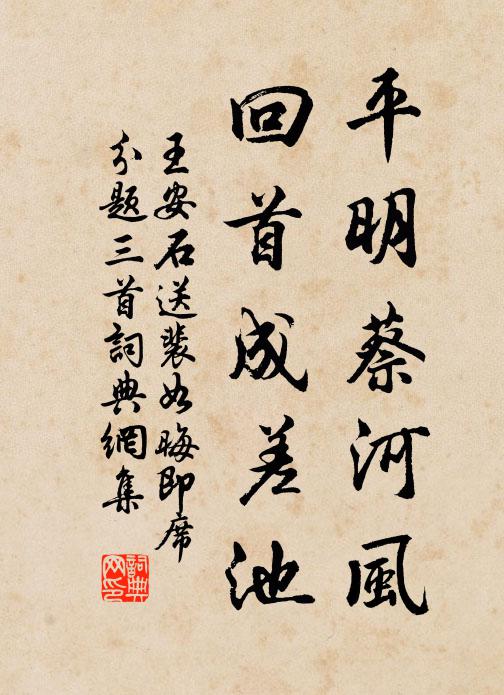 平明蔡河風
回首成差池
王安石送裴如晦即席
分題三首詞典網集
詞典
网印